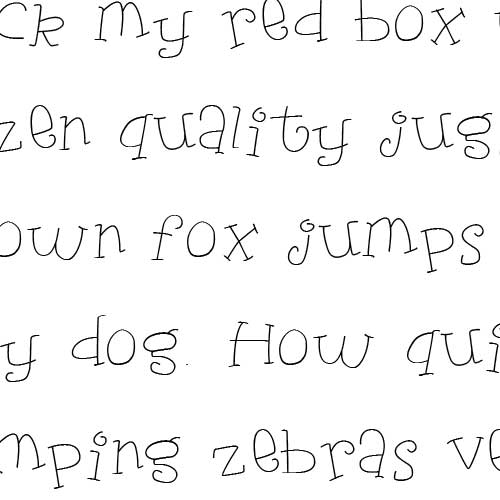 ck my red box
zen quality jug
own fox jumps
y dog. How qui
mping zebras ve